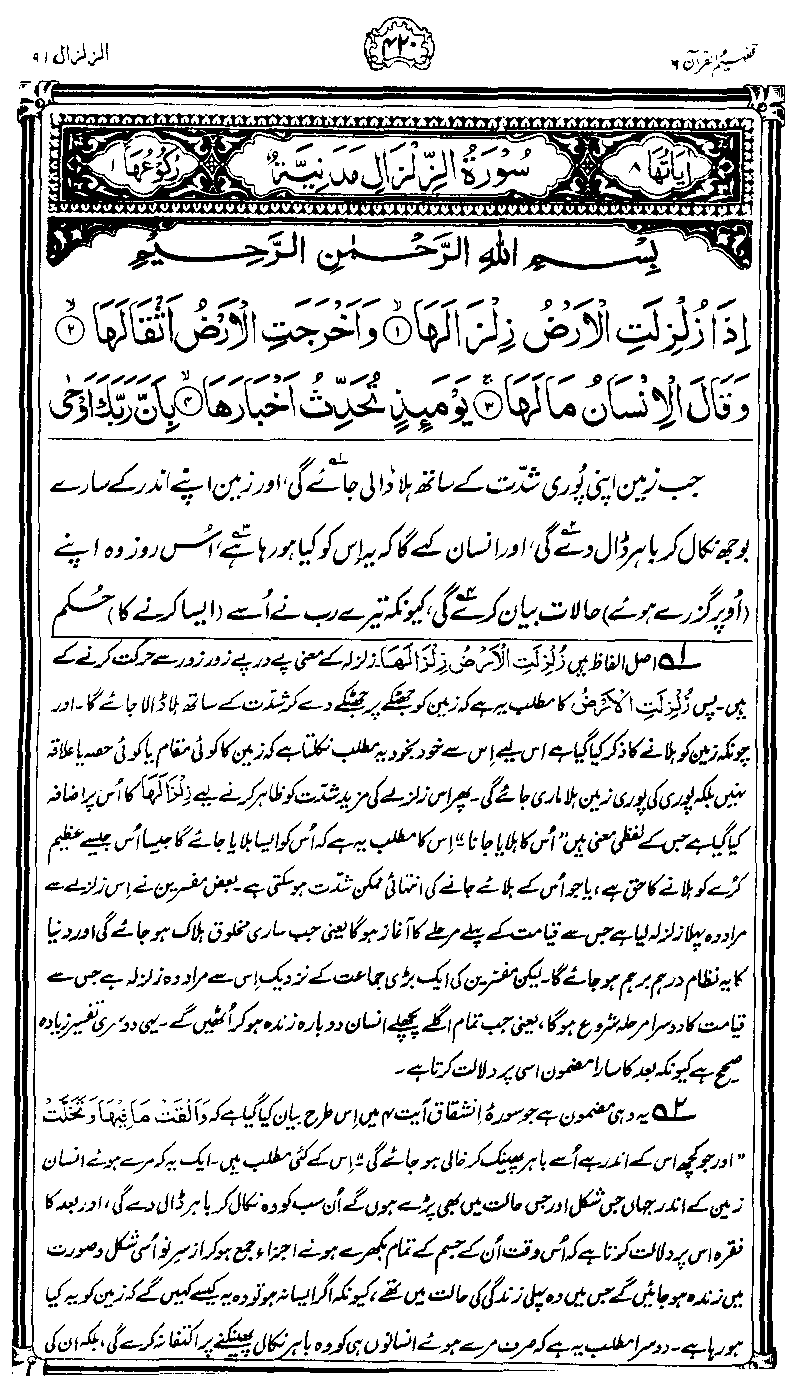 تفہیم القرآن ۶
۴۲۰
الزلزال ۹۱
اٰیَاتُهَا ۸
سُوْرَةُ الزِّلْزَالِ مَدَنِيَّةٌ
رُكُوْعُهَا ۱
بِسْمِ اللهِ الرَّحْمٰنِ الرَّحِيْمِ
اِذَا زُلْزِلَتِ الْاَرْضُ زِلْزَالَهَا ۝۱ وَاَخْرَجَتِ الْاَرْضُ اَثْقَالَهَا ۝۲
وَقَالَ الْاِنْسَانُ مَا لَهَا ۝۳ يَوْمَئِذٍ تُحَدِّثُ اَخْبَارَهَا ۝۴ بِاَنَّ رَبَّكَ اَوْحٰى
جب زمین اپنی پُوری شدّت کے ساتھ ہلا ڈالی جائے گی۱؎، اور زمین اپنے اندر کے سارے
بوجھ نکال کر باہر ڈال دے گی۲؎، اور انسان کہے گا کہ یہ اِس کو کیا ہو رہا ہے۳؎، اُس روز وہ اپنے
(اُوپر گزرے ہوئے) حالات بیان کرے گی۴؎، کیونکہ تیرے رب نے اُسے (ایسا کرنے کا) حُکم
۱؎ اصل الفاظ ہیں زُلْزِلَتِ الْاَرْضُ زِلْزَالَهَا۔ زلزلہ کے معنی پے در پے زور زور سے حرکت کرنے کے
ہیں۔ پس زُلْزِلَتِ الْاَرْضُ کا مطلب یہ ہے کہ زمین کو جھٹکے پر جھٹکے دے کر شدّت کے ساتھ ہلا ڈالا جائے گا۔ اور
چونکہ زمین کو ہلانے کا ذکر کیا گیا ہے اس لیے اِس سے خود بخود یہ مطلب نکلتا ہے کہ زمین کا کوئی مقام یا کوئی حصہ یا علاقہ
نہیں بلکہ پوری کی پوری زمین ہلا ماری جائے گی۔ پھر اس زلزلے کی مزید شدّت کو ظاہر کرنے لیے زِلْزَالَهَا کا اُس پر اضافہ
کیا گیا ہے جس کے لفظی معنی ہیں ”اُس کا ہلایا جانا“ اِس کا مطلب یہ ہے کہ اُس کو ایسا ہلایا جائے گا جیسا اُس جیسے عظیم
کرّے کو ہلانے کا حق ہے، یا جو اُس کے ہلائے جانے کی انتہائی ممکن شدّت ہو سکتی ہے۔ بعض مفسرین نے اِس زلزلے سے
مراد وہ پہلا زلزلہ لیا ہے جس سے قیامت کے پہلے مرحلے کا آغاز ہوگا یعنی جب ساری مخلوق ہلاک ہو جائے گی اور دنیا
کا یہ نظام درہم برہم ہو جائے گا۔ لیکن مفسرین کی ایک بڑی جماعت کے نزدیک اِس سے مراد وہ زلزلہ ہے جس سے
قیامت کا دوسرا مرحلہ شروع ہوگا، یعنی جب تمام اگلے پچھلے انسان دوبارہ زندہ ہو کر اُٹھیں گے۔ یہی دوسری تفسیر زیادہ
صحیح ہے کیونکہ بعد کا سارا مضمون اسی پر دلالت کرتا ہے۔
۲؎ یہ وہی مضمون ہے جو سورۂ انشقاق آیت ۴ میں اِس طرح بیان کیا گیا ہے کہ وَاَلْقَتْ مَا فِيْهَا وَتَخَلَّتْ
”اور جو کچھ اس کے اندر ہے اُسے باہر پھینک کر خالی ہو جائے گی“ اِس کے کئی مطلب ہیں۔ ایک یہ کہ مرے ہوئے انسان
زمین کے اندر جہاں جس شکل اور جس حالت میں بھی پڑے ہوں گے اُن سب کو وہ نکال کر باہر ڈال دے گی، اور بعد کا
فقرہ اس پر دلالت کرتا ہے کہ اُس وقت اُن کے جسم کے تمام بکھرے ہوئے اجزاء جمع ہو کر از سرِ نو اُسی شکل و صورت
میں زندہ ہو جائیں گے جس میں وہ پہلی زندگی کی حالت میں تھے، کیونکہ اگر ایسا نہ ہو تو وہ یہ کیسے کہیں گے کہ زمین کو یہ کیا
ہو رہا ہے۔ دوسرا مطلب یہ ہے کہ صرف مرے ہوئے انسانوں ہی کو وہ باہر نکال پھینکنے پر اکتفا نہ کرے گی، بلکہ ان کی